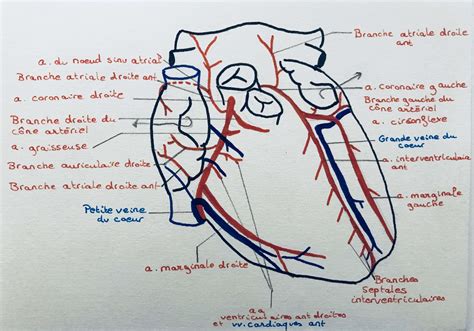 Branche atriale droite
ant
a. du noeud sinu atrial
Branche atriale droite ant
a. coronaire droite
Branche droite du
cône artériel
a. graisseuse
Branche auriculaire droite
Branche atriale droite ant
Petite veine
du coeur
a. coronaire gauche
Branche gauche du
cône artériel
a. circonflexe
Grande veine du
coeur
a. interventriculaire
ant
a. marginale
gauche
a. marginale droite
Branches
Septales
interventriculaires
aa
ventriculaires ant droites
et vv. cardiaques ant